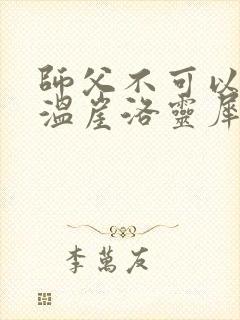 師父不可以
溫崖洛靈犀
李萬友